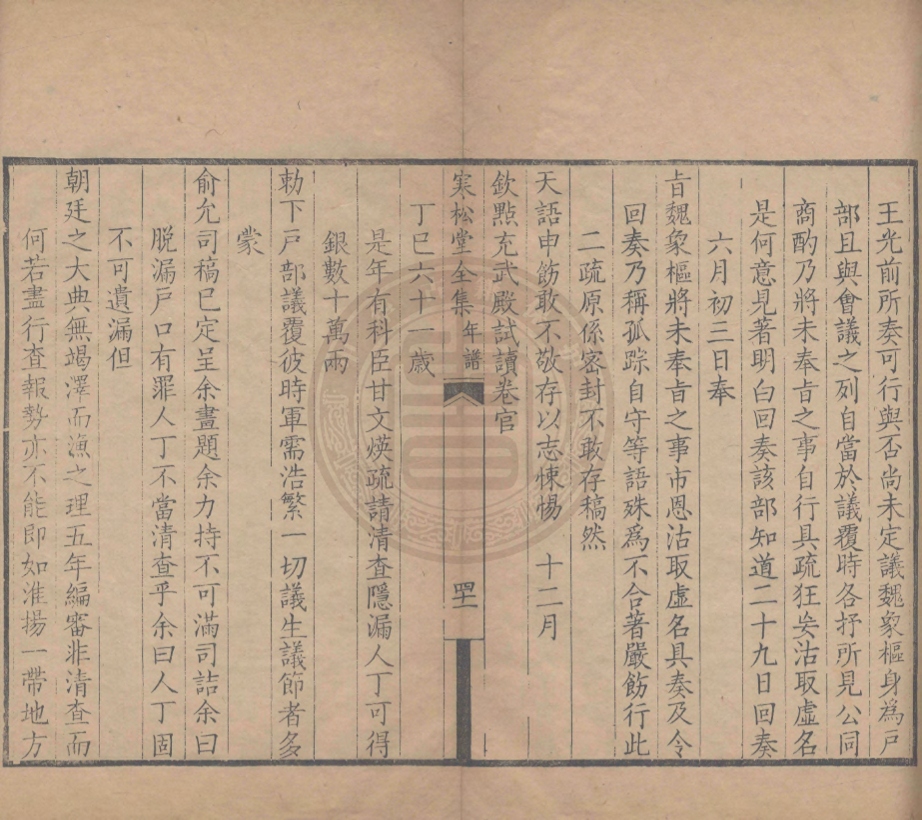 王光前所奏可行與否尚未定議魏象樞身為戶
部且與會議之列自當於議覆時各抒所見公同
商酌乃將未奉旨之事自行具疏狂妄沽取虛名
是何意見著明白回奏該部知道二十九日回奏
六月初三日奉
旨魏象樞將未奉旨之事市恩沽取虛名具奏及令
回奏乃稱孤踪自守等語殊為不合著嚴飭行此
二疏原係密封不敢存稿然
天語申飭敢不敬存以志悚惕　十二月
欽點充武殿試讀卷官
寒松堂全集 年譜 四一
丁巳六十一歲
是年有科臣甘文煐疏請清查隱漏人丁可得
銀數十萬兩
勅下戶部議覆彼時軍需浩繁一切議生議節者多
蒙
俞允司稿已定呈余畫題余力持不可滿司詰余曰
脫漏戶口有罪人丁不當清查乎余曰人丁固
不可遺漏但
朝廷之大典無竭澤而漁之理五年編審非清查而
何若盡行查報勢亦不能即如淮揚一帶地方